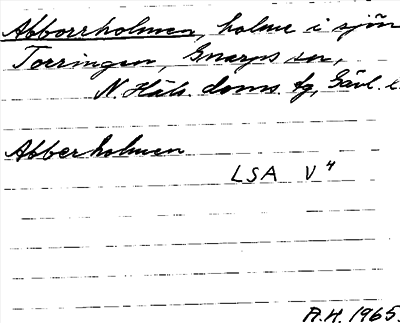 Abborrholmen, holme i sjön
Torringen, Gnarps sn,
N. Häls. doms. fg, Gävl. l.
Abberholmen
LSA V⁴
A.H. 1965.